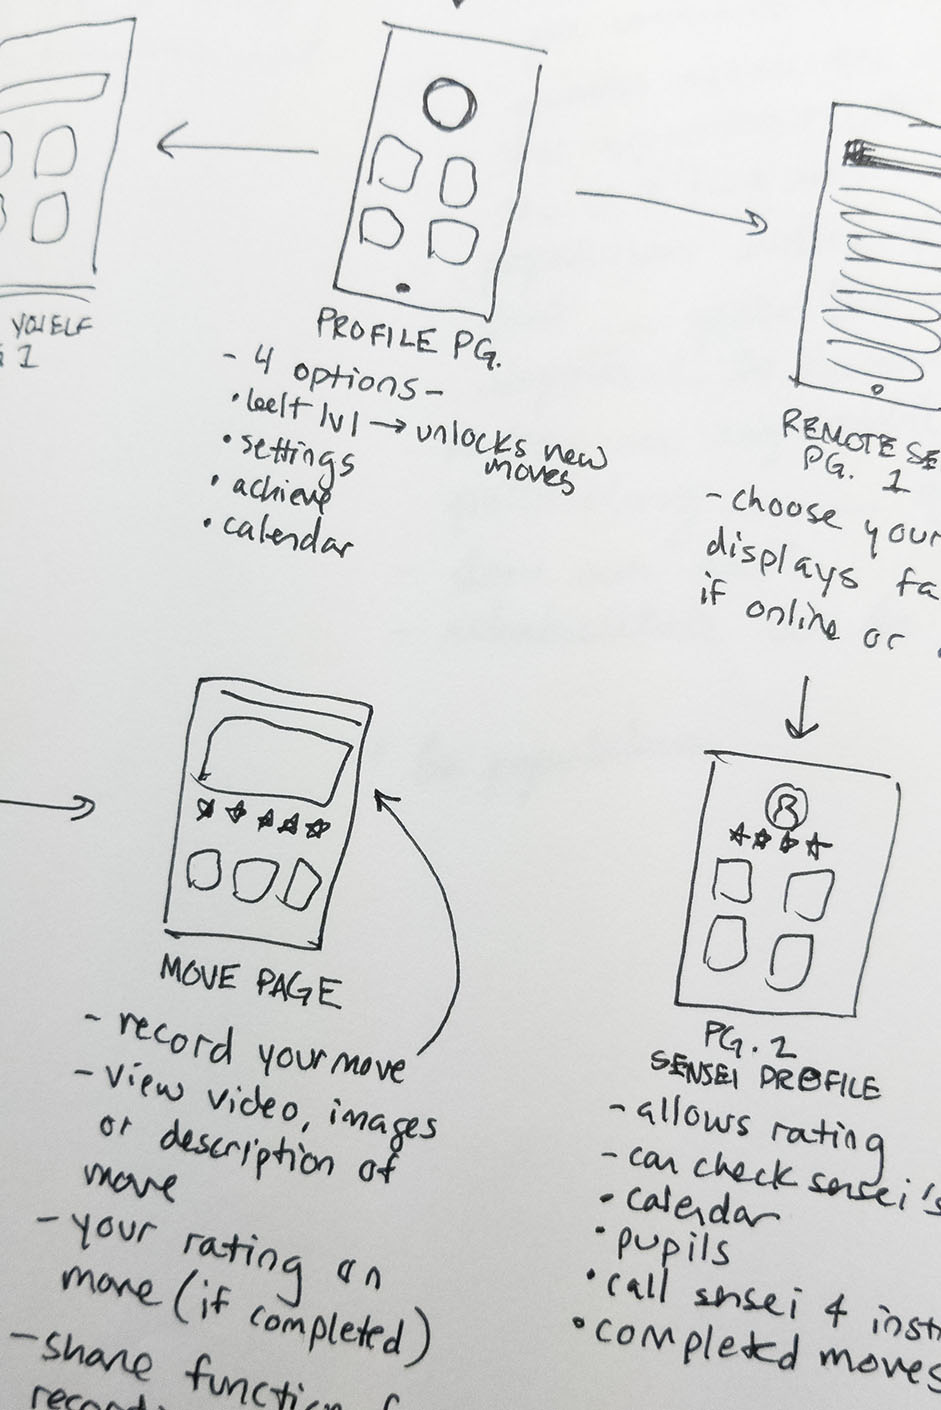 YOURSELF
1
PROFILE PG.
- 4 options -
• belt lvl → unlocks new
moves
• settings
• achieve
• calendar
REMOTE SE
PG. 1
- choose your
displays fa
if online or
MOVE PAGE
- record your move
- view video, images
or description of
move
- your rating on
move (if completed)
- share function f
record
PG. 2
SENSEI PROFILE
- allows rating
- can check sensei's
• calendar
• pupils
• call sensei 4 inst
• completed moves